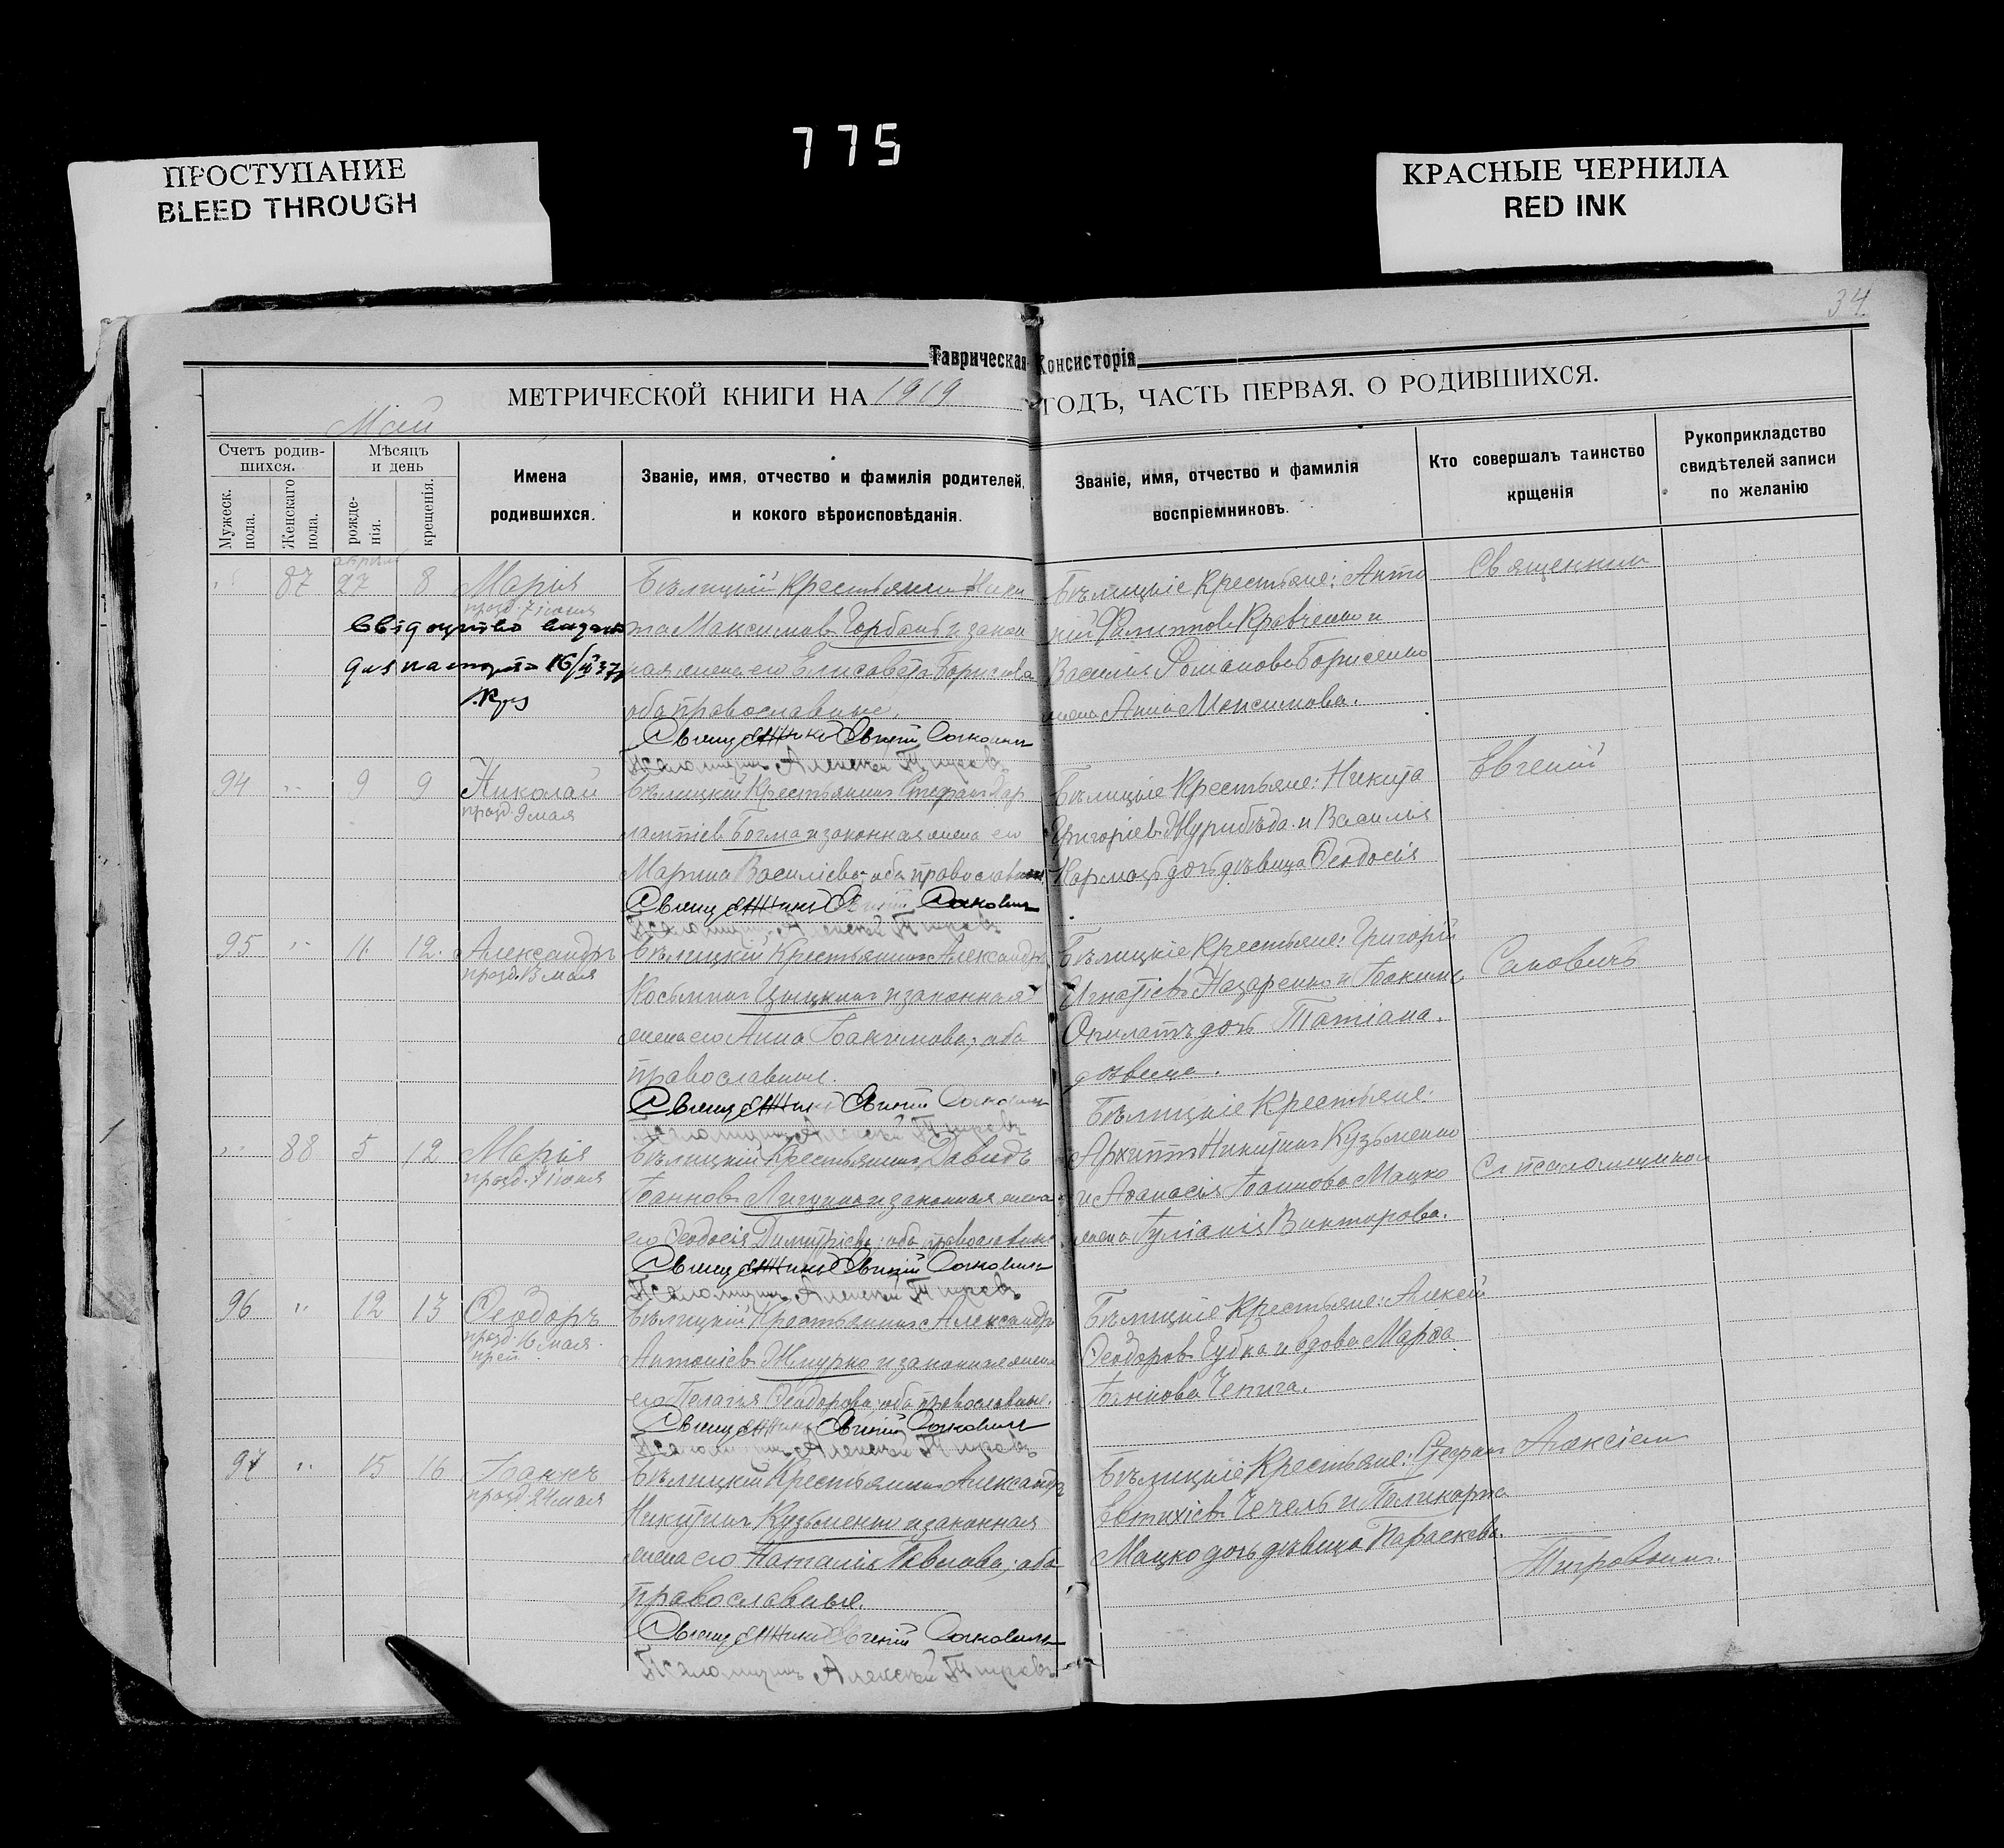 775
ПРОСТУПАНИЕ
BLEED THROUGH
КРАСНЫЕ ЧЕРНИЛА
RED INK
34
Таврическая Консисторія
МЕТРИЧЕСКОЙ КНИГИ НА 1919 ГОДЪ, ЧАСТЬ ПЕРВАЯ, О РОДИВШИХСЯ.
Май
Счетъ родив-
шихся.
Мужеск.
пола.
Женскаго
пола.
Мѣсяцъ
и день
рожде-
нія.
крещенія.
Имена
родившихся.
Званіе, имя, отчество и фамилія родителей,
и кокого вѣроисповѣданія.
Званіе, имя, отчество и фамилія
воспріемниковъ.
Кто совершалъ таинство
крщенія
Рукоприкладство
свидѣтелей записи
по желанію
апрѣля
87 27 8 Марія
празд. 7 іюня
Бѣлицкій крестьянинъ Ники
та Максимовъ Горбань и закон
ная жена его Елисавета Борисова
оба православные.
Священникъ Евгеній Саковичъ
Псаломщикъ Алексѣй Тигровъ
Бѣлицкіе крестьяне: Анто
ній Филипповъ Кравченко и
Василія Романова Борисенко
жена Анна Максимова.
Священник
94 9 9 Николай
празд. 9 мая
Бѣлицкій крестьянинъ Стефанъ Хар
лампіевъ Богма и законная жена его
Марина Василіева, оба православные
Священникъ Евгеній Саковичъ
Псаломщикъ Алексѣй Тигровъ
Бѣлицкіе крестьяне: Никита
Григоріевъ Журибѣда и Василія
дочь дѣвица Ѳеодосія
Евгеній
95 11 12 Александръ
празд. 13 мая
Бѣлицкій крестьянинъ Александръ
Косьминъ и законная
жена его Анна Іоакимова, оба
православные.
Священникъ Евгеній Саковичъ
Псаломщикъ Алексѣй Тигровъ
Бѣлицкіе крестьяне: Григорій
Игнатіевъ Назаренко и Іоакима
дочь Татіана.
дѣвица.
Саковичъ
88 5 12 Марія
празд. 7 іюня
Бѣлицкій крестьянинъ Давидъ
Іоанновъ и законная жена
его Ѳеодосія Димитріева, оба православные
Священникъ Евгеній Саковичъ
Псаломщикъ Алексѣй Тигровъ
Бѣлицкіе крестьяне:
Архиппъ Никитинъ Кузьменко
и Аѳанасія Іоаннова Мацко
жена Іуліанія Викторова.
съ псаломщиком
96 12 13 Ѳеодоръ
празд. 16 мая
Бѣлицкій крестьянинъ Александръ
Антоніевъ Жмурко и законная жена
его Пелагія Ѳеодорова, оба православные.
Священникъ Евгеній Саковичъ
Псаломщикъ Алексѣй Тигровъ
Бѣлицкіе крестьяне: Алексѣй
Ѳеодоровъ Губка и вдова Марѳа
Іоаннова Чепига.
97 15 16 Іоаннъ
празд. 24 мая
Бѣлицкій крестьянинъ Александръ
Никитинъ Кузьменко и законная
жена его Наталія Павлова; оба
православные.
Священникъ Евгеній Саковичъ
Псаломщикъ Алексѣй Тигровъ
Бѣлицкіе крестьяне: Стефанъ
Евтихіевъ Чечель и Поликарпа
Мацко дочь дѣвица Параскева.
Алексіем
Тигровымъ.